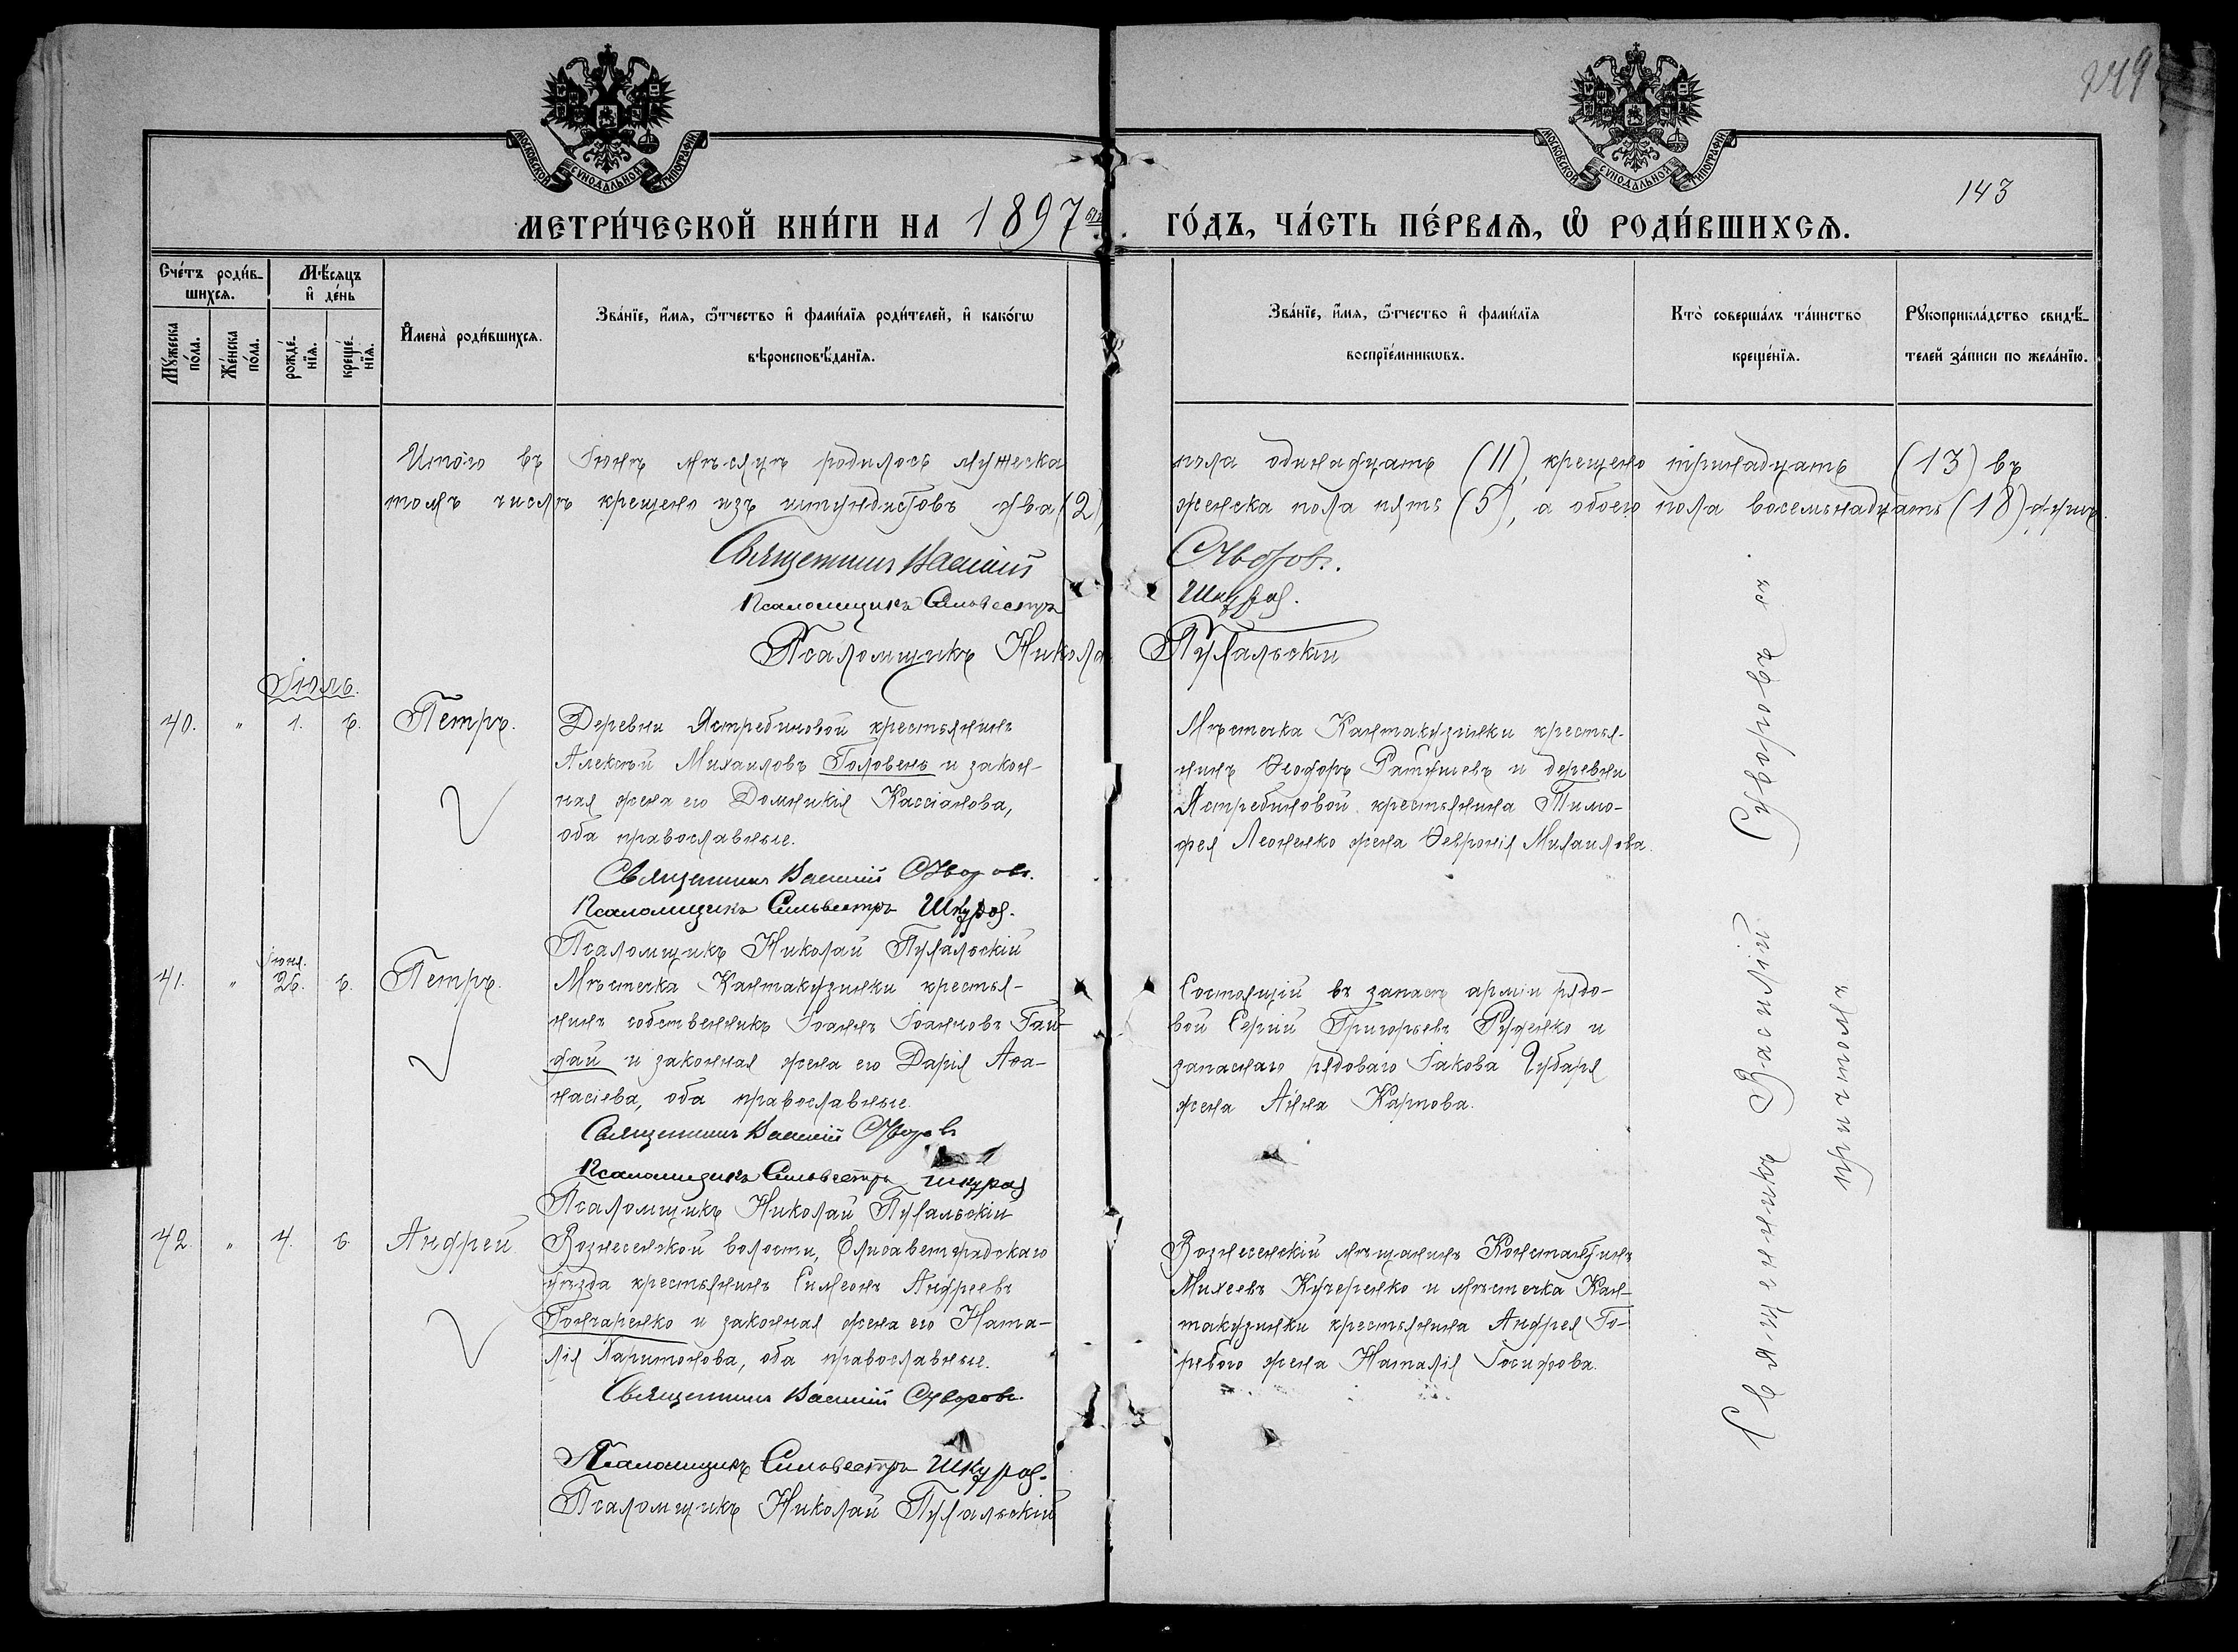 249
МОСКОВСКОЙ СѴНОДАЛЬНОЙ ТИПОГРАФІИ
МОСКОВСКОЙ СѴНОДАЛЬНОЙ ТИПОГРАФІИ
143
МЕТРИ́ЧЕСКОЙ КНИ́ГИ НА 1897 ГО́ДЪ, ЧА́СТЬ ПЕ́РВАѦ, Ѽ РОДИ́ВШИХСѦ.
Сче́тъ роди́в-
шихсѧ.
Мѣ́сяцъ
и҆ де́нь
Мꙋ́жеска
по́ла.
Же́нска
по́ла.
рожде́-
нїѧ.
креще́-
нїѧ.
И҆мена̀ роди́вшихсѧ.
Зва́нїе, и҆́мѧ, ѻ҆́тчество и҆ фами́лїѧ роди́телей, и҆ како́гѡ
вѣроисповѣ́данїѧ.
Зва́нїе, и҆́мѧ, ѻ҆́тчество и҆ фами́лїѧ
воспрїе́мникѡвъ.
Кто̀ соверша́лъ та́инство
креще́нїѧ.
Рꙋкоприкла́дство свидѣ́-
телей за́писи по жела́нїю.
Итого въ Іюнѣ мѣсяцѣ родилось мужеска пола одинадцать (11), крещено тринадцать (13) въ
томъ числѣ крещено изъ штундистовъ два (2), женска пола пять (5), а обоего пола восемьнадцать (18) душъ.
Священникъ Василій Суворовъ.
Псаломщикъ Сильвестръ Шкура.
Псаломщикъ Николай Пулальскій
Іюль.
40. " 1. 6. Петръ.
Деревни Ястребиновой крестьянинъ
Алексѣй Михаиловъ Головень и закон-
ная жена его Домникія Кассіанова,
оба православные.
Священникъ Василій Суворовъ.
Псаломщикъ Сильвестръ Шкура.
Псаломщикъ Николай Пулальскій
Мѣстечка Кантакузинки крестья-
нинъ Ѳеодоръ Ратушевъ и деревни
Ястребиновой крестьянина Тимо-
фея Леоненко жена Февронія Михаилова.
Іюня.
41. " 26. 6. Петръ.
Мѣстечка Кантакузинки крестья-
нинъ собственникъ Іоаннъ Іоанновъ Гай-
дай и законная жена его Дарія Аѳа-
насіева, оба православные.
Священникъ Василій Суворовъ
Псаломщикъ Сильвестръ Шкура
Псаломщикъ Николай Пулальскій
Состоящій въ запасѣ арміи рядо-
вой Сергій Григорьевъ Руденко и
запаснаго рядоваго Іакова Чубаря
жена Анна Карпова.
42. " 4. 6. Андрей.
Вознесенской волости, Елисаветградскаго
уѣзда крестьянинъ Симеонъ Андреевъ
Гончаренко и законная жена его Ната-
лія Харитонова, оба православные.
Священникъ Василій Суворовъ.
Псаломщикъ Сильвестръ Шкура.
Псаломщикъ Николай Пулальскій
Вознесенскій мѣщанинъ Константинъ
Михеевъ Кучеренко и мѣстечка Кан-
такузинки крестьянина Андрея Го-
ребого жена Наталія Іосифова.
Священникъ Василій Суворовъ съ
причтомъ